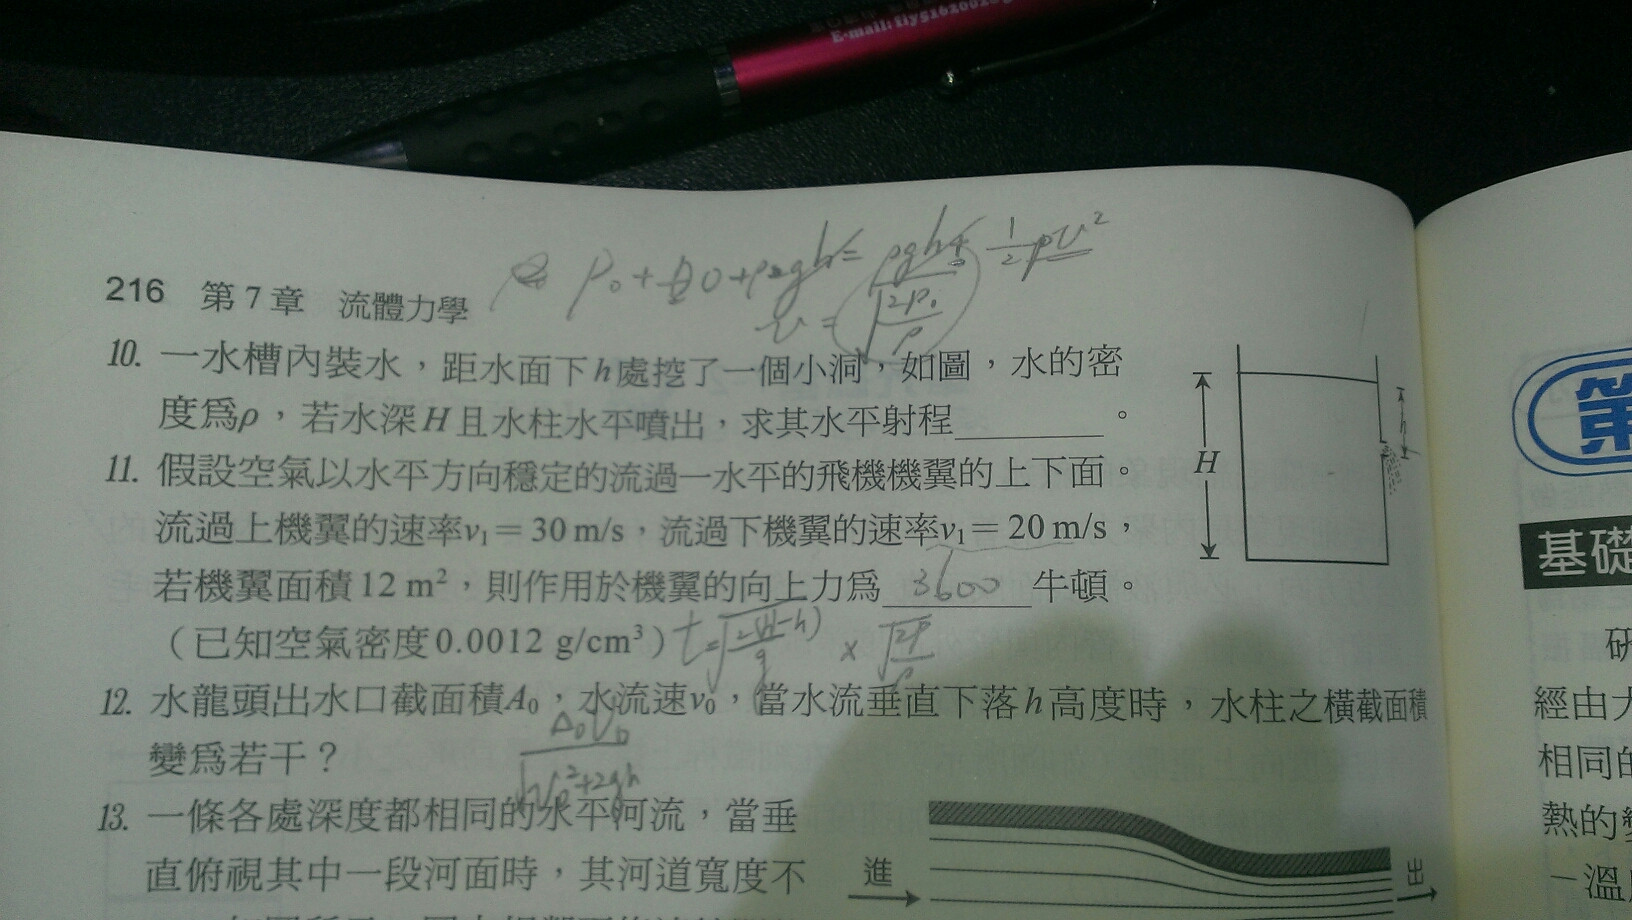 E-mail:fly5162002
P₀ + 0 + ρgh = ρgh + ½ρv²
v = √(2P₀/ρ)
216 第7章 流體力學
10. 一水槽內裝水，距水面下h處挖了一個小洞，如圖，水的密
度爲ρ，若水深H且水柱水平噴出，求其水平射程________。
H
h
11. 假設空氣以水平方向穩定的流過一水平的飛機機翼的上下面。
流過上機翼的速率v₁＝30 m/s，流過下機翼的速率v₁＝20 m/s，
若機翼面積12 m²，則作用於機翼的向上力爲 3600 牛頓。
（已知空氣密度0.0012 g/cm³）
t=√(2(H-h)/g) × √(2P/ρ)
12. 水龍頭出水口截面積A₀，水流速v₀，當水流垂直下落h高度時，水柱之橫截面積
變爲若干？
A₀V₀/√(V₀²+2gh)
13. 一條各處深度都相同的水平河流，當垂
直俯視其中一段河面時，其河道寬度不
進
出
第
基礎
研
經由
相同的
熱的
一溫